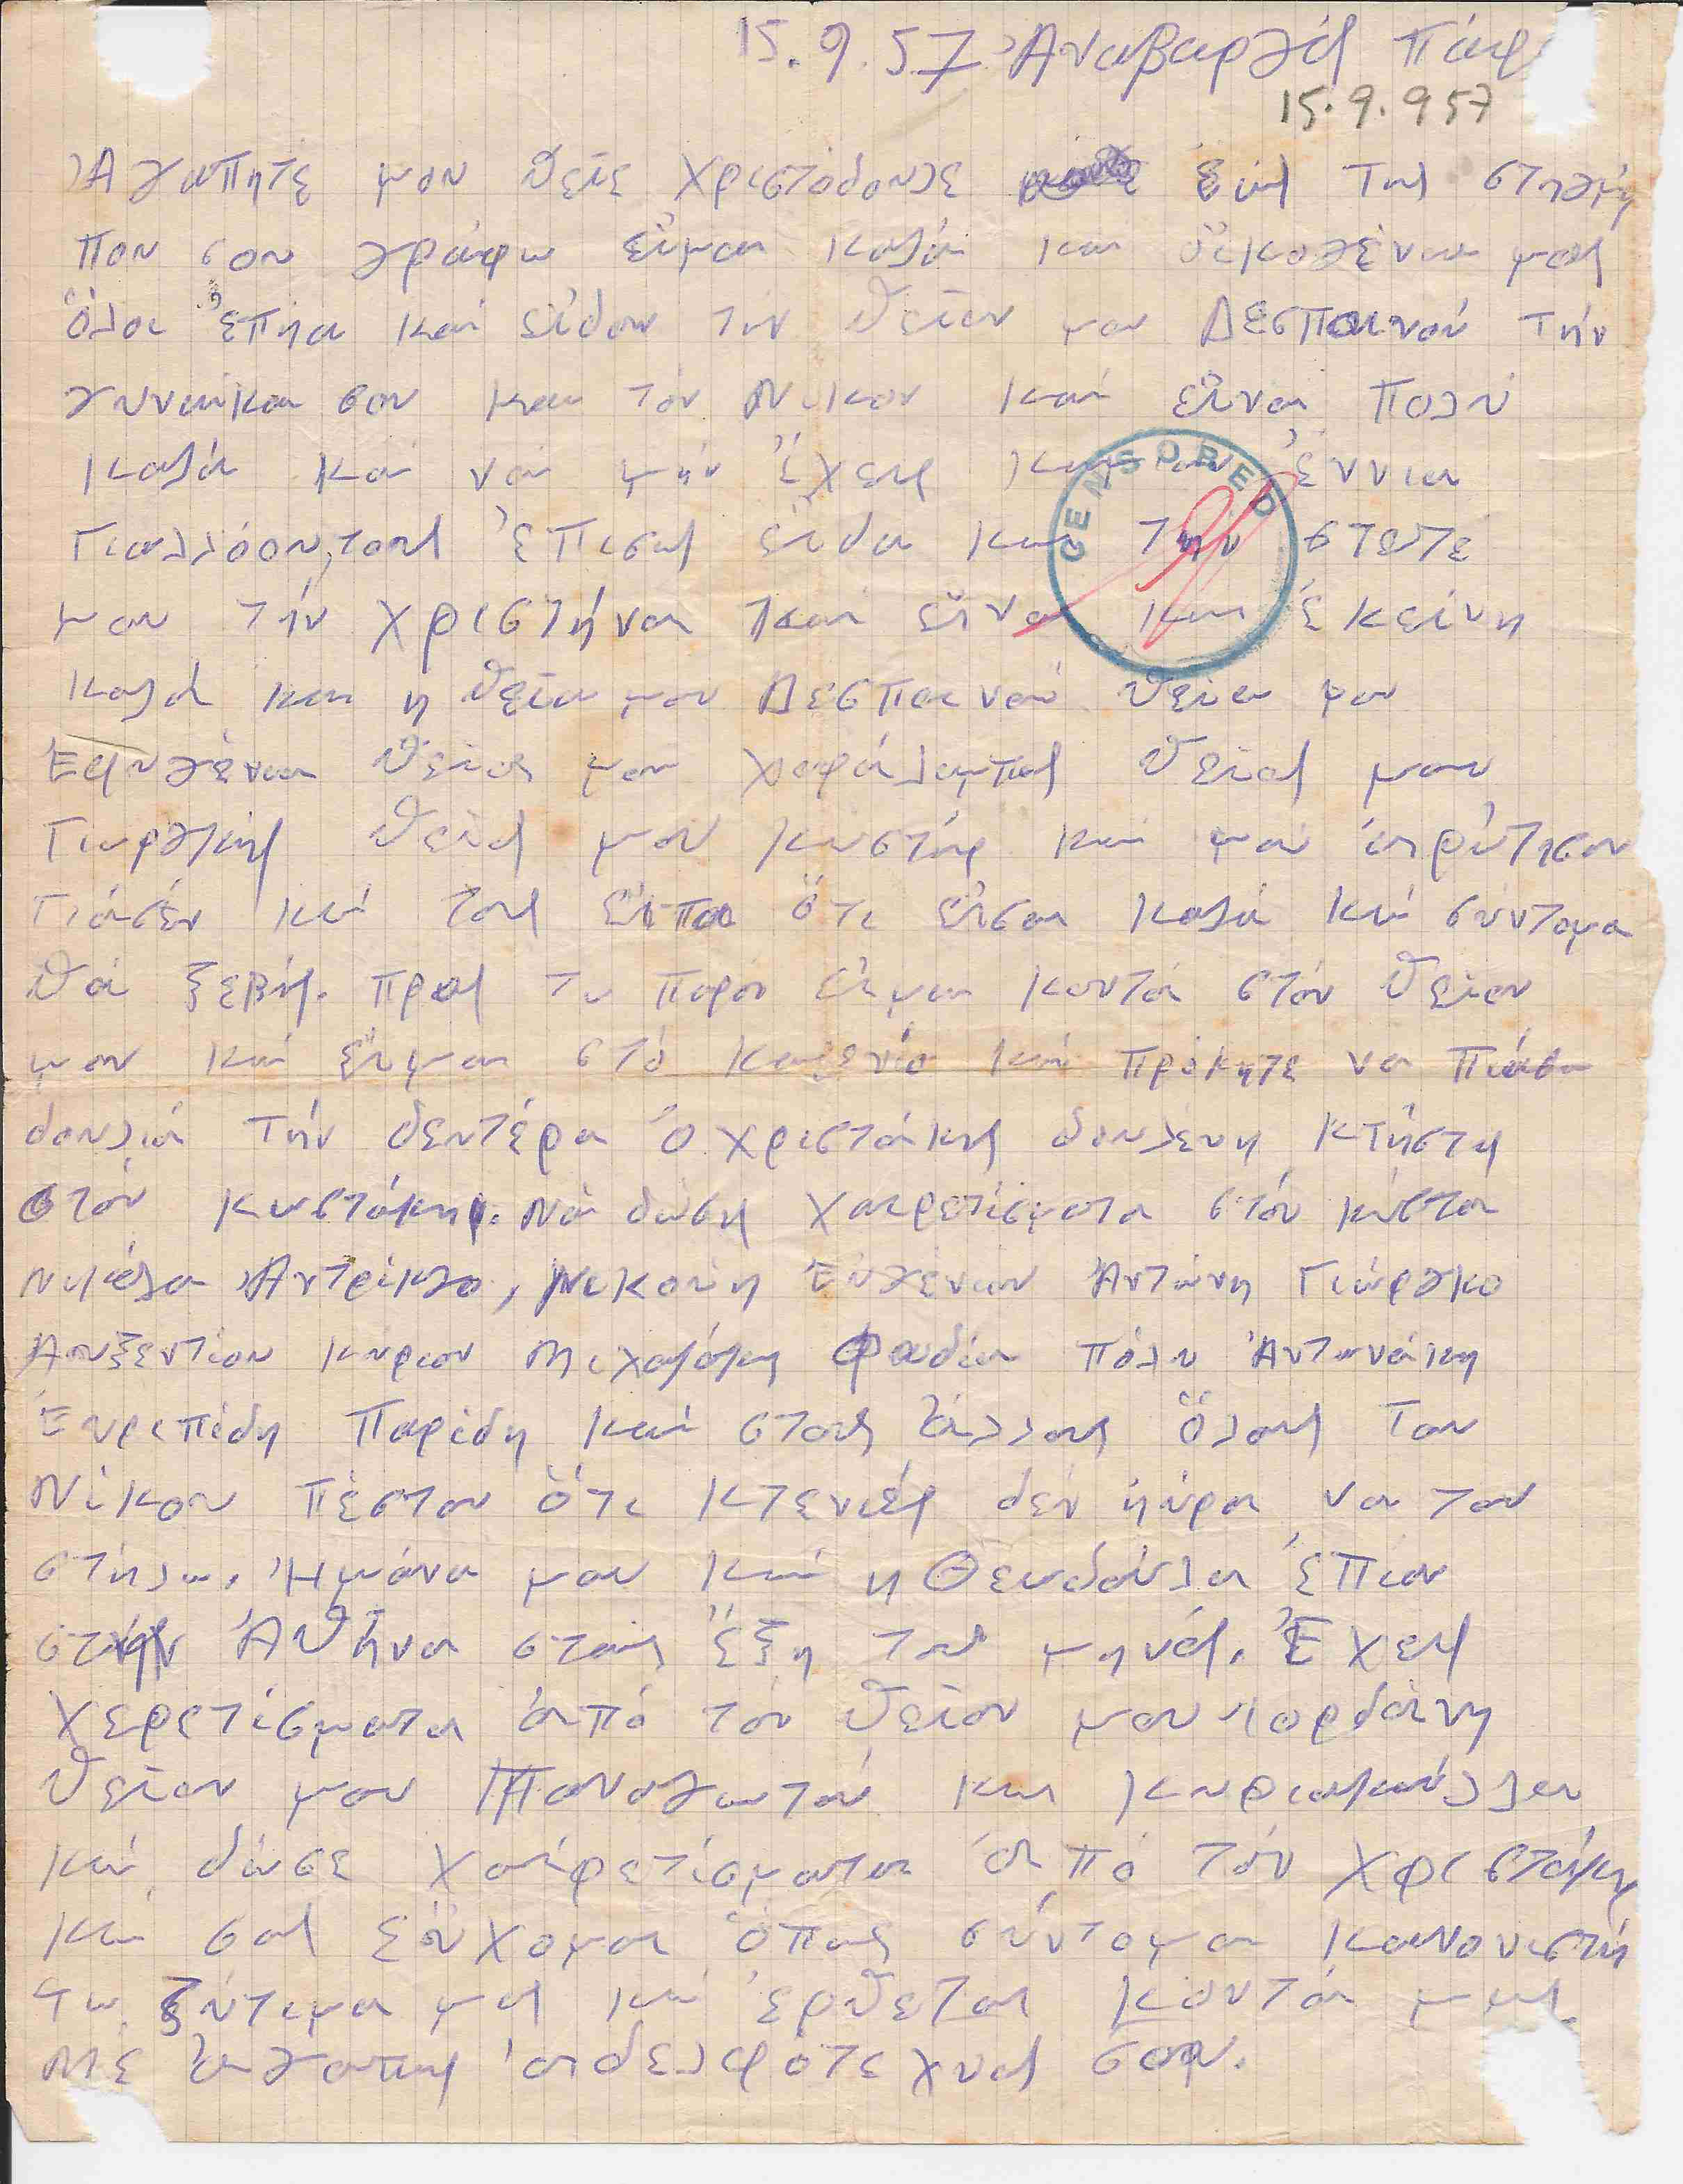 15.9.57 Ἀναβαργός Πάφ
15.9.957
Ἀγαπητέ μου θεῖε Χριστόδουλε ἐώς της στηγμή
που σου γράφω εἴμαι καλά και οἰκογένια μας
ὅλοι ἔπηα και εἴδα τήν θεῖαν μου Δεσποινού τήν
γυναίκα σου και τόν Νίκον και εἴναι πολύ
καλά και να μήν ἔχεις καμιαν ἔννια
Γιαλλόου,τους ἔπισης εἴδα και την στετέ
μου τήν χριστήνα και εἴναι και ἐκείνη
καλά και η θεῖα μου Δεσποινού θεῖα μου
Εὐγένια θεῖος μου χαράλαμπος θεῖος μου
Γιωρκής θεῖος μου κωστής και μου ἀρώτησαν
Γιάσέν και τους εἴπα ὅτι εἴσαι καλά και σύντομα
θά ξεβής. προς τω παρόν εἴμαι κοντά στόν θεῖον
μου και εἴμαι στό καφενίο και πρόκητε να πιάσω
δουλιά τήν δευτέρα ὁ χριστάκης δουλεύη κτήστης
στόν κωστάκην. Νά δώσης χαιρετίσματα στόν κώστα
Ἀντρίκκο, Νικολή Εὐγένιον Ἀντώνη Γιώρκο
Αυξεντίου κύριον Μιχαλάκη Φωδία Πόλυ Ἀντωνάκη
Ἐυριπίδη Παρίδη και στους ἄλλους ὅλους Τον
Νίκον πέστου ὅτι κτενιές δέν ἡύρα να του
στήλω. Ἡ μάνα μου και η Θεωδούλα ἔπιαν
στην Ἀθήνα στας ἕξη του μηνός. Ἔχεις
χερετίσματα ἀπό τόν θεῖον μου Ἰορδάνη
θεῖον μου Παναγιωτόν και κυριακούλλαν
και δώσε χαιρετίσματα ἀπό τόν χριστάκη
και σας εὔχομαι ὅπως σύντομα κανονιστή
τω ζύτιμα μας και ἐρθεται κοντά μας.
Μέ ἀγαπης ἀδελφότεχνος σου.
CENSORED